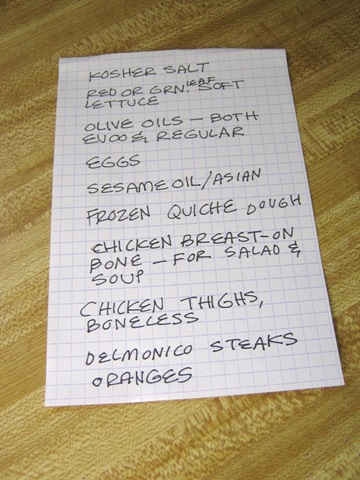 KOSHER SALT
RED OR GRN. LEAF SOFT
LETTUCE
OLIVE OILS – BOTH
EVOO & REGULAR
EGGS
SESAME OIL/ASIAN
FROZEN QUICHE DOUGH
CHICKEN BREAST-ON
BONE – FOR SALAD &
SOUP
CHICKEN THIGHS,
BONELESS
DELMONICO STEAKS
ORANGES